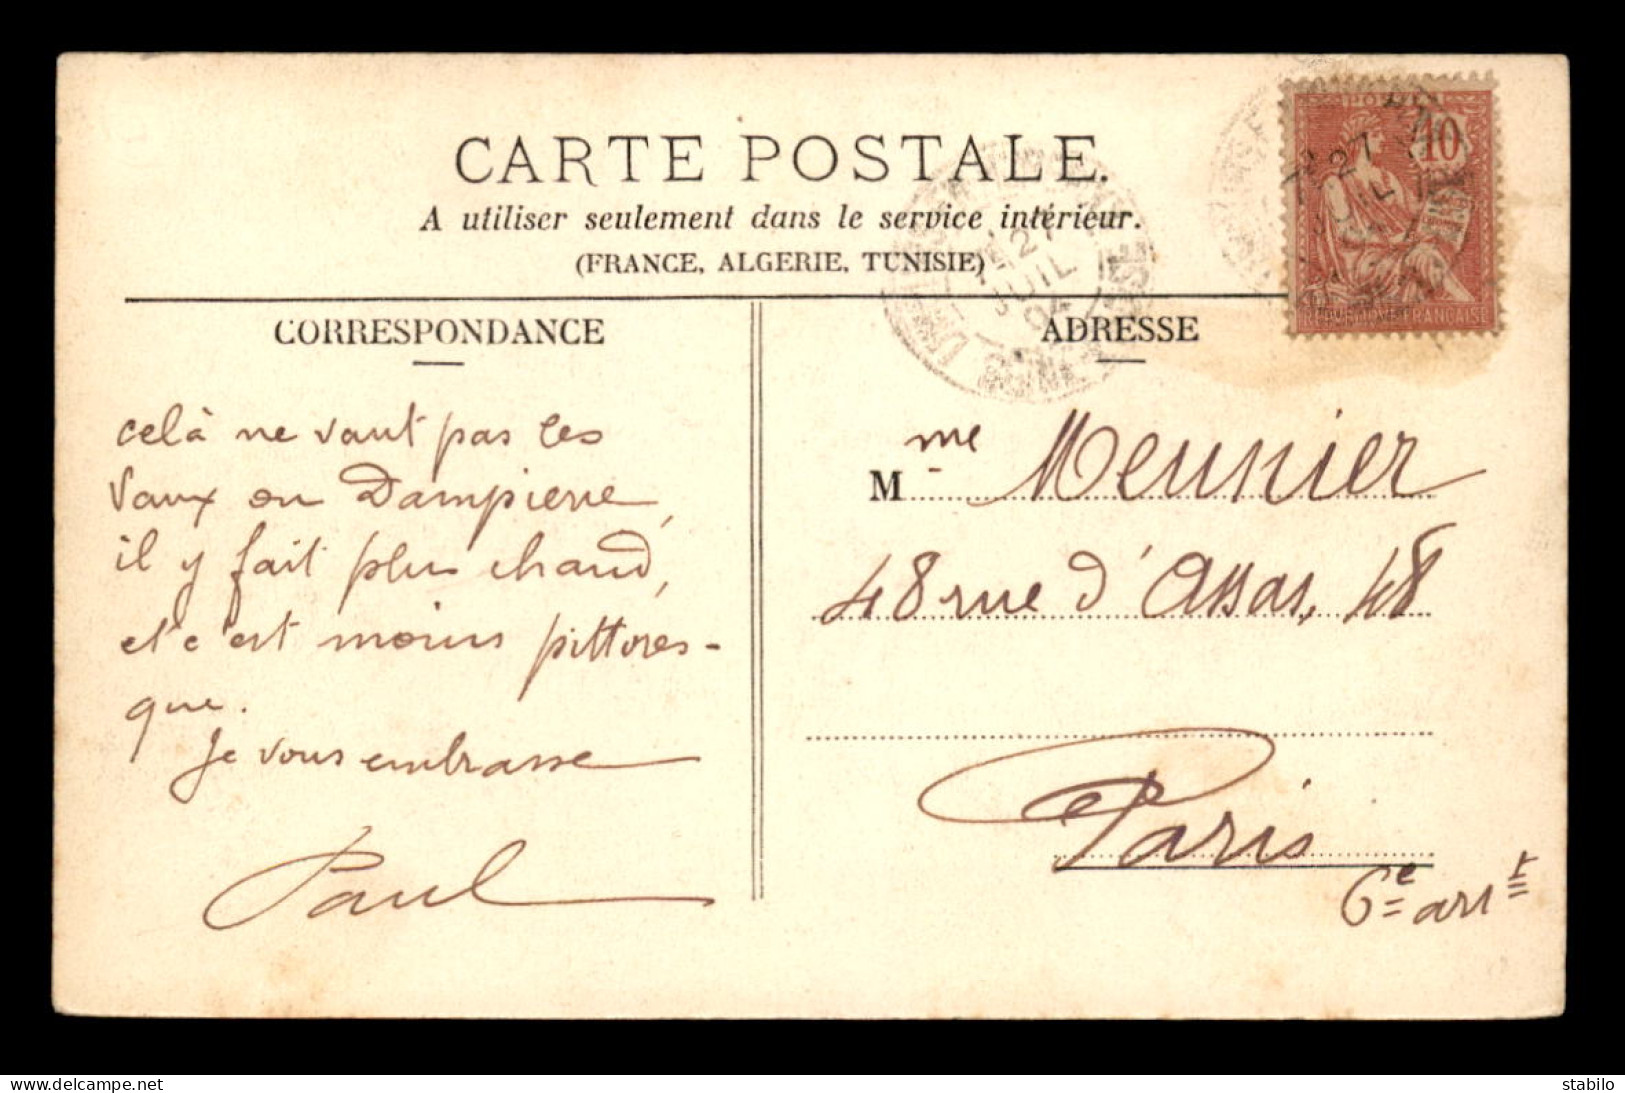 CARTE POSTALE.
A utiliser seulement dans le service intérieur.
(FRANCE, ALGERIE, TUNISIE)
CORRESPONDANCE
celà ne vaut pas les
Vaux ou Dampierre,
il y fait plus chaud,
et c'est moins pittores-
que.
Je vous embrasse
Paul
ADRESSE
Mme Meunier
48 rue d'Assas, 48
Paris
6e arrt
POSTES
10
27
JUIL
04
REPUBLIQUE FRANÇAISE
27
JUIL
04
SEINE
delcampe.net
stabilo